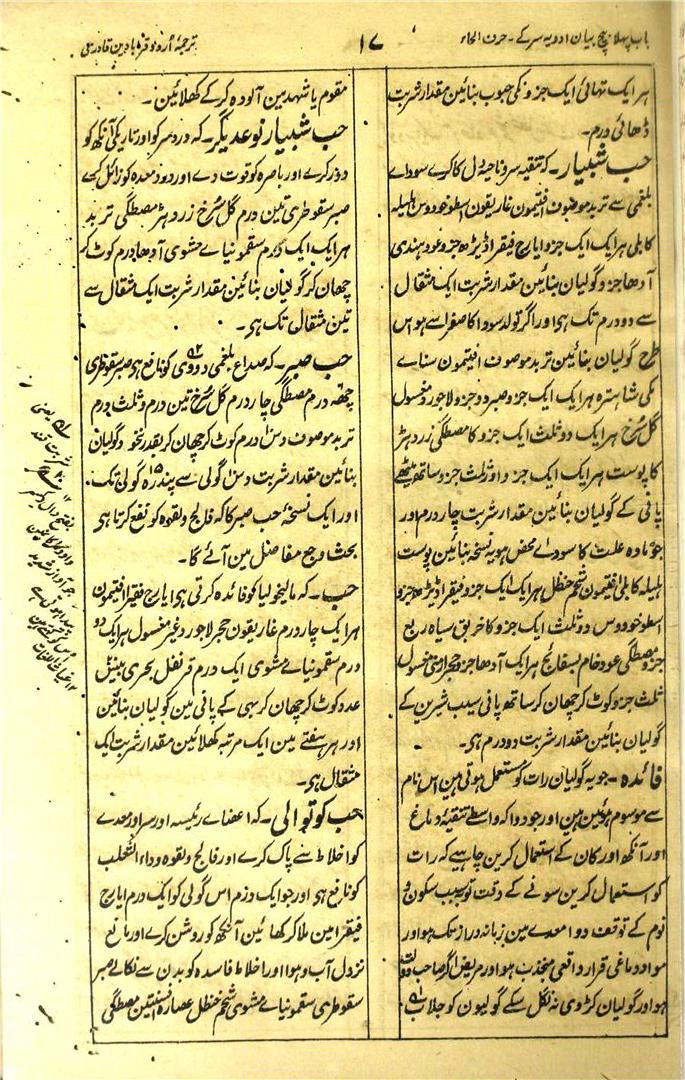 باب پہلا بیچ بیان ادویہ سر کے - حرف الحاء
۱۷
ترجمۂ اُردو قرابادین قادری
ہر ایک تہائی ایک جزو کی حبوب بنائین مقدار شربت
ڈھائی درم۔
حب شبیار۔ کہ تنقیہ سر و ناحیۂ دل کا کرے سوداے
بلغمی سے تربد موصوف افتیمون غاریقون اسطوخودوس ہلیلہ
کابلی ہر ایک ایک جزو ایارج فیقرا ڈیڑھ جزو عود ہندی
آدھا جزو گولیان بنائین مقدار شربت ایک مثقال
سے دو درم تک ہی اور اگر تولد سودا کا صفرا سے ہو اس
طرح گولیان بنائین تربد موصوف افتیمون سناے
مکی شاہترہ ہر ایک ایک جزو صبر دو جزو لاجورد مغسول
گل سرخ ہر ایک دو ثلث ایک جزو کا مصطگی زرد ہڑ
کا پوست ہر ایک ایک جزو اور ثلث جزو ساتھ میٹھے
پانی کے گولیان بنائین مقدار شربت چار درم اور
جو مادہ علت کا سوداے محض ہو یہ نسخہ بنائین پوست
ہلیلہ کابلی افتیمون شحم حنظل ہر ایک ایک جزو فیقرا ڈیڑھ جزو
اسطوخودوس دو ثلث ایک جزو کا خربق سیاہ ربع
جزو مصطگی عود خام بسفائج ہر ایک آدھا جزو حجر ارمنی مغسول
ثلث جزو کوٹ کر چھان کر ساتھ پانی سیب شیرین کے
گولیان بنائین مقدار شربت دو درم ہی۔
فائدہ۔ جو یہ گولیان رات کو مستعمل ہوتی ہین اس نام
سے موسوم ہوئین ہین اور جو دوا کہ واسطے تنقیۂ دماغ
اور آنکھ اور کان کے استعمال کرین چاہیے کہ رات
کو استعمال کرین سونے کے وقت تو بسبب سکون و
نوم کے توقف دوا معدے مین زمانۂ دراز تک ہو اور
مواد دماغی قرار واقعی منجذب ہو اور مریض اگر صاحب دولت
ہو اور گولیان کڑوی نہ نگل سکے گولیون کو جلاب
مقوم یا شہد مین آلودہ کر کے کھلائین۔
حب شبیار نوعدیگر۔ کہ درد سر کو اور تاریکی آنکھ کو
دور کرے اور باصرہ کو قوت دے اور درد معدہ کو زائل کرے
صبر سقوطری تین درم گل سرخ زرد ہڑ مصطگی تربد
ہر ایک ایک درم سقمونیاے مشوی آدھا درم کوٹ کر
چھان کر گولیان بنائین مقدار شربت ایک مثقال سے
تین مثقال تک ہی۔
حب صبر۔ کہ صداع بلغمی و دوی کو نافع ہی صبر سقوطری
چھ درم مصطگی چار درم گل سرخ تین درم و ثلث درم
تربد موصوف دس درم کوٹ کر چھان کر بقدر نخود گولیان
بنائین مقدار شربت دس گولی سے پندرہ گولی تک۔
اور ایک نسخہ حب صبر کا کہ فالج و لقوہ کو نفع کرتا ہی
بحث وجع مفاصل مین آئے گا۔
حب۔ کہ مالیخولیا کو فائدہ کرتی ہی ایارج فیقرا افتیمون
ہر ایک چار درم غاریقون حجر لاجورد غیر مغسول ہر ایک دو
درم سقمونیاے مشوی ایک درم قرنفل بحری بیس
عدد کوٹ کر چھان کر بہی کے پانی مین گولیان بنائین
اور ہر ہفتے مین ایک مرتبہ کھلائین مقدار شربت ایک
مثقال ہی۔
حب کوتوالی۔ کہ اعضاے رئیسہ اور سر اور معدے
کو اخلاط سے پاک کرے اور فالج و لقوہ و داء الثعلب
کو نافع ہو اور جو ایک درم اس گولی کو ایک درم ایارج
فیقرا مین ملا کر کھائین آنکھ کو روشن کرے اور مانع
نزول آب ہو اور اخلاط فاسدہ کو بدن سے نکالے صبر
سقوطری سقمونیاے مشوی شحم حنظل عصارہ افسنتین مصطگی